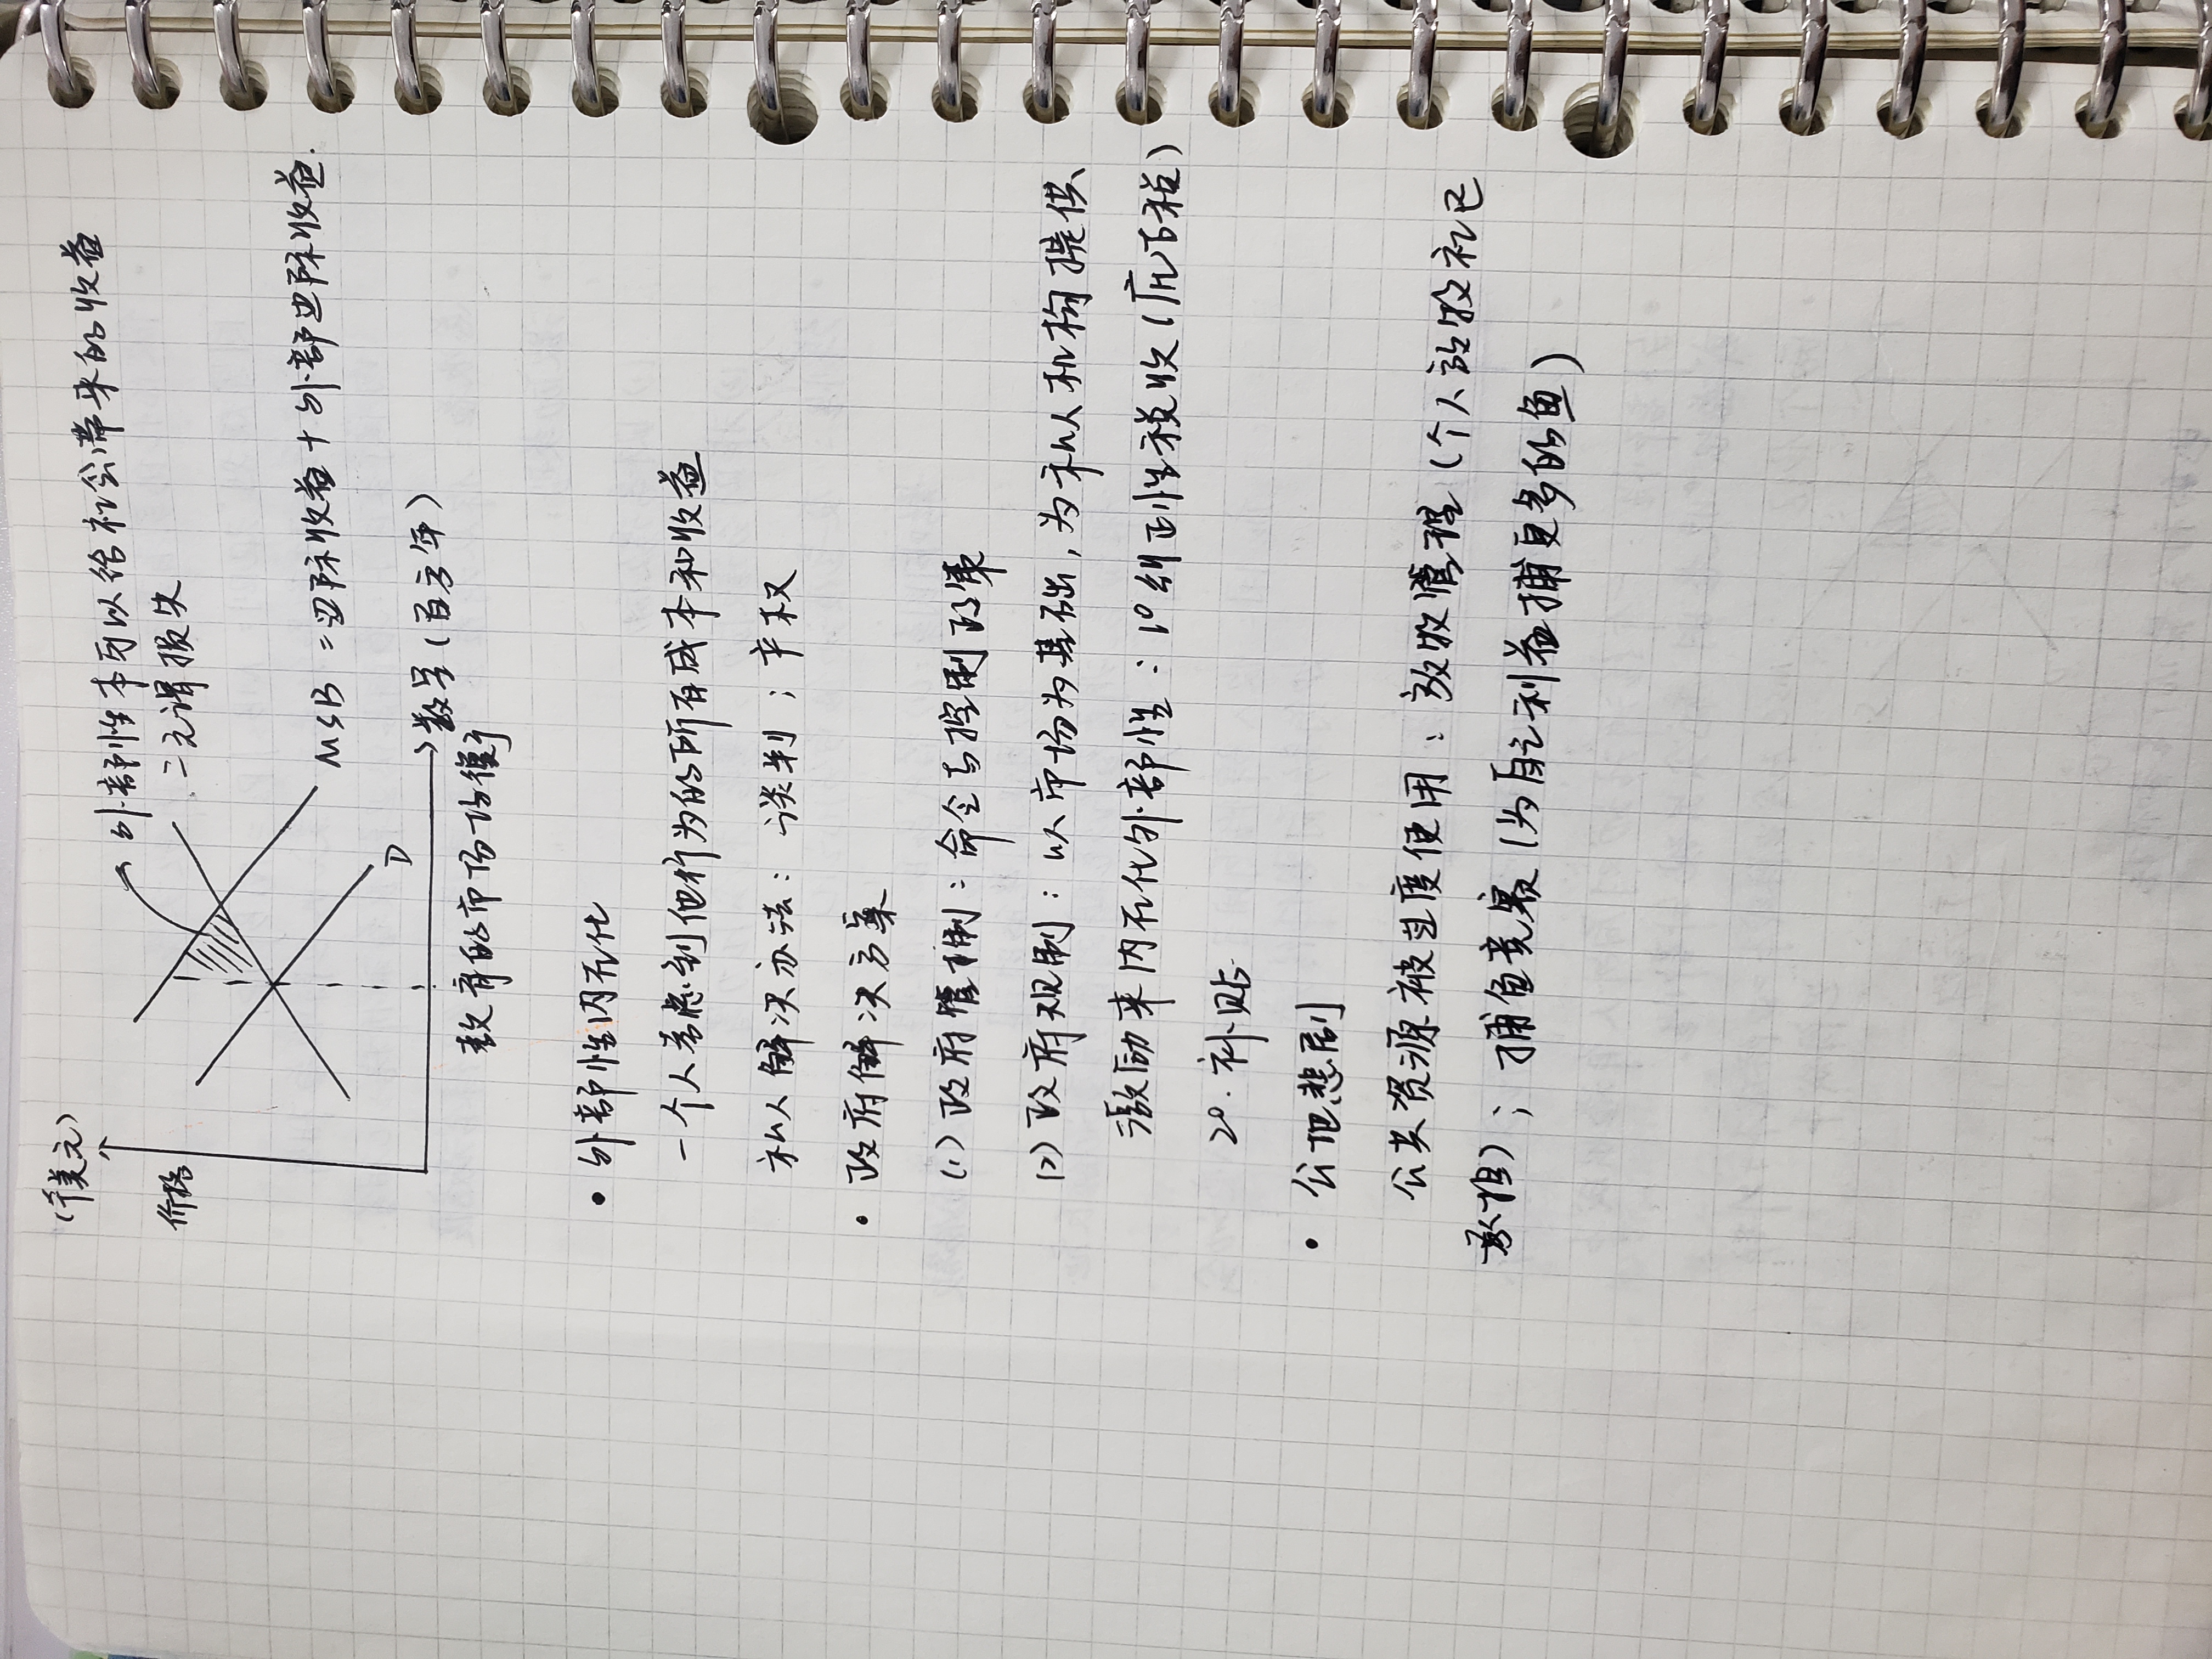 (千美元)
价格
外部性本可以给社会带来的收益
=无谓损失
MSB =边际收益+外部边际收益.
D
数量(百万年)
教育的市场均衡
• 外部性内在化
一个人考虑到他行为的所有成本和收益
私人解决办法: 谈判; 产权
• 政府解决方案
(1) 政府管制: 命令与控制政策
(2) 政府规制: 以市场为基础,为私人机构提供
激励来内在化外部性: 1° 纠正性税收(庇古税)
2°. 补贴
• 公地悲剧
公共资源被过度使用: 放牧管理(个人放牧社已
承担); 捕鱼竞赛(为自己利益捕更多的鱼)